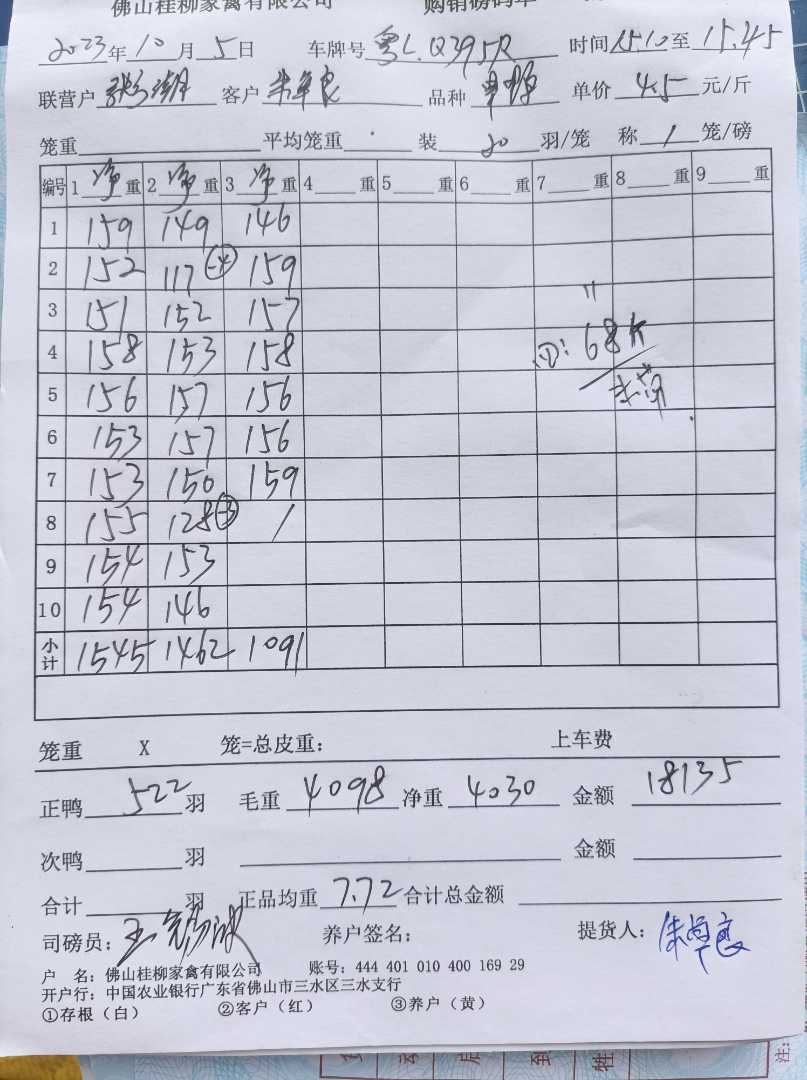 佛山桂柳家禽有限公司 购销磅码单
2023年10月5日 车牌号 粤L.Q395R 时间 15.10至15.45
联营户 客户 朱卓良 品种 单价 4.5 元/斤
笼重 平均笼重 装 20 羽/笼 称 1 笼/磅
编号 1 净 重 2 净 重 3 净 重 4 重 5 重 6 重 7 重 8 重 9 重
1 159 149 146
2 152 117 -4 159
3 151 152 157
4 158 153 158
5 156 157 156
6 153 157 156
7 153 150 159
8 155 128 -3 /
9 154 153
10 154 146
小计 1545 1462 1091
68斤
笼重 X 笼=总皮重： 上车费
正鸭 522 羽 毛重 4098 净重 4030 金额 18135
次鸭 羽 金额
合计 羽 正品均重 7.72 合计总金额
司磅员： 养户签名： 提货人：朱卓良
户 名：佛山桂柳家禽有限公司 账号：444 401 010 400 169 29
开户行：中国农业银行广东省佛山市三水区三水支行
①存根（白） ②客户（红） ③养户（黄）